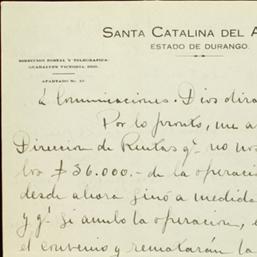 SANTA CATALINA DEL A
ESTADO DE DURANGO.
DIRECCION POSTAL Y TELEGRAFICA:
GUADALUPE VICTORIA, DGO.
APARTADO No.
á Comunicaciones. Dios dirá
Por lo pronto, me a
Direccion de Rentas qe. no nos
bro $36.000.- de la operació
desde ahora giró a medida
y qe. si anulo la operacion, e
el convenio y rematarán la